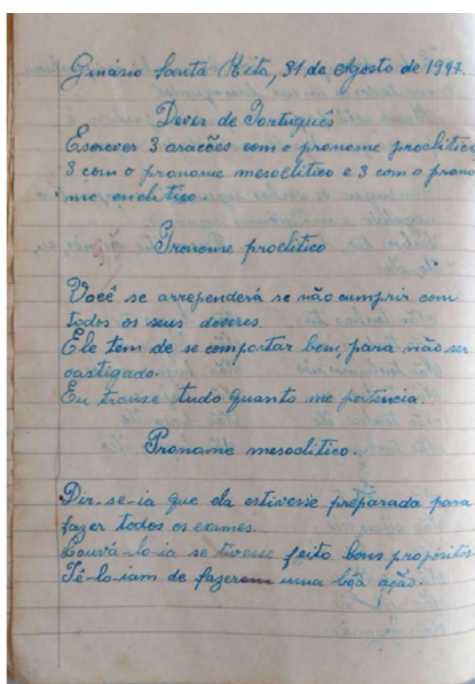 Ginásio Santa Rita, 31 de Agosto de 1942.
Dever de Português
Escrever 3 orações com o pronome proclítico
3 com o pronome mesoclítico e 3 com o prono
me enclítico.
Pronome proclítico
Você se arrependerá se não cumprir com
todos os seus deveres.
Ele tem de se comportar bem para não ser
castigado.
Eu trouse tudo quanto me pertencia.
Pronome mesoclítico.
Dir-se-ia que ela estivesse preparada para
fazer todos os exames.
Louvá-lo-ia se tivesse feito bons propósitos.
Tê-lo-iam de fazerem uma boa ação.